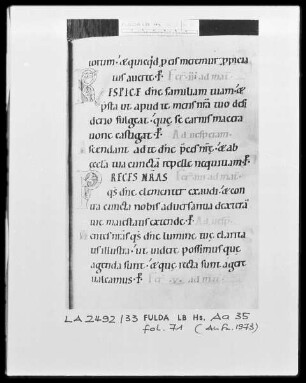 torum · & quicqd pcis meremur ppicia
tus averte · P Fer III ad mat
RESPICE dne familiam tuam · &
psta ut apud te mens nra tuo desi
derio fulgeat · que se carnis macera
tione castigat · P Ad vesperam
scendant ad te dne pces nre · & ab
eccla tua cuncta repelle nequitiam · P
PRECES NRAS
qs dne clementer exaudi · & con
tra cuncta nobis adversantia dexterā
tue maiestatis extende · P
entes nras qs dne lumine tue clarita
tis illustra · ut videre possimus que
agenda sunt · & que recta sunt agere
valeamus · P
LA 2492/33 FULDA LB Hs. Aa 35
fol. 71 (Au.Fr. 1973)